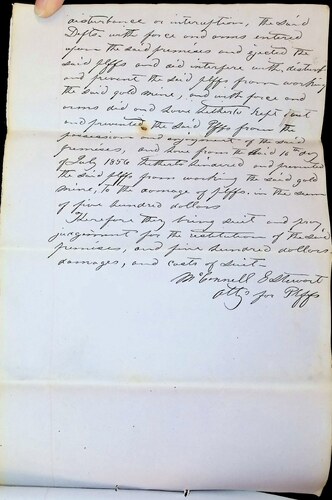 disturbance or interruption, the said
Defts with force and arms entered
upon the said premises and ejected the
said plffs and did interfere with, disturb
and prevent the said plffs from working
the said gold mine, and with force and
arms did and have hitherto kept out
and prevented the said plffs from the
possession and enjoyment of the said
premises, and have from the said 10th day
of July 1856 hitherto hindered and prevented
the said plffs from working the said gold
mine, to the damage of plffs. in the sum
of five hundred dollars
Therefore they bring suit and pray
judgement for the restitution of the said
premises, and five hundred dollars
damages, and costs of suit—
McConnell & Stewart
Attys for Plffs